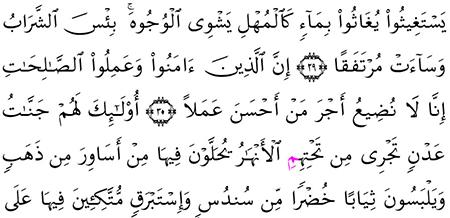 يَسْتَغِيثُوا۟ يُغَاثُوا۟ بِمَآءٍ كَٱلْمُهْلِ يَشْوِى ٱلْوُجُوهَ ۚ بِئْسَ ٱلشَّرَابُ
وَسَآءَتْ مُرْتَفَقًا ﴿٢٩﴾ إِنَّ ٱلَّذِينَ ءَامَنُوا۟ وَعَمِلُوا۟ ٱلصَّـٰلِحَـٰتِ
إِنَّا لَا نُضِيعُ أَجْرَ مَنْ أَحْسَنَ عَمَلًا ﴿٣٠﴾ أُو۟لَـٰٓئِكَ لَهُمْ جَنَّـٰتُ
عَدْنٍ تَجْرِى مِن تَحْتِهِمِ ٱلْأَنْهَـٰرُ يُحَلَّوْنَ فِيهَا مِنْ أَسَاوِرَ مِن ذَهَبٍ
وَيَلْبَسُونَ ثِيَابًا خُضْرًا مِّن سُندُسٍ وَإِسْتَبْرَقٍ مُّتَّكِـِٔينَ فِيهَا عَلَى